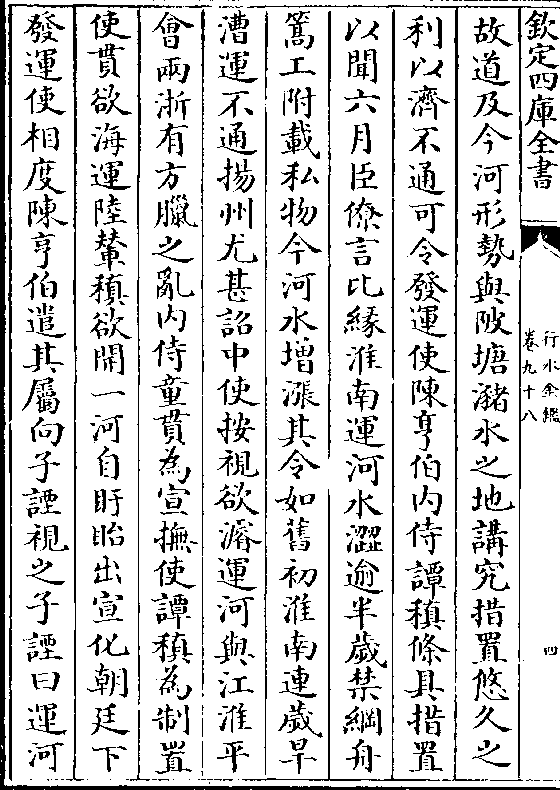 欽定四庫全書
行水金鑑
卷九十八
四
故道及今河形勢與陂塘瀦水之地講究措置悠久之
利以濟不通可令發運使陳亨伯内侍譚稹條具措置
以聞六月臣僚言比緣淮南運河水澀逾半歲禁綱舟
篙工附載私物今河水增漲其令如舊初淮南連歲旱
漕運不通揚州尤甚詔中使按視欲濬運河與江淮平
會兩浙有方臘之亂内侍童貫為宣撫使譚稹為制置
使貫欲海運陸輦稹欲開一河自盱眙出宣化朝廷下
發運使相度陳亨伯遣其屬向子諲視之子諲曰運河